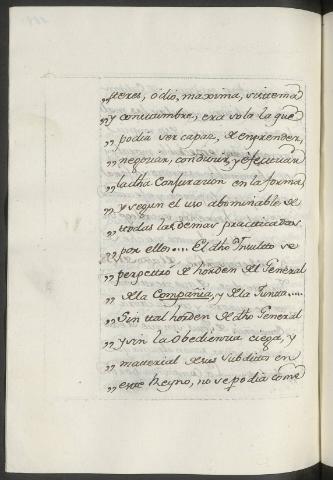 „teres, ódio, maxîma, sistema
„y consttumbre; era sola la que
„podia ser capaz, de emprender,
„negociar, conducir, y efectuar
„la dha Conjuracion en la forma,
„y segun el uso abominable de
„todas las demas practicadas
„por ellos.... El dho Insulto se
„perpettró de horden del General
„de la Compañia, y de la Junta....
„Sin tal horden de dho General
„y sin la Obediencia ciega, y
„matterial de sus Subditos en
„este Reyno, no se podia come